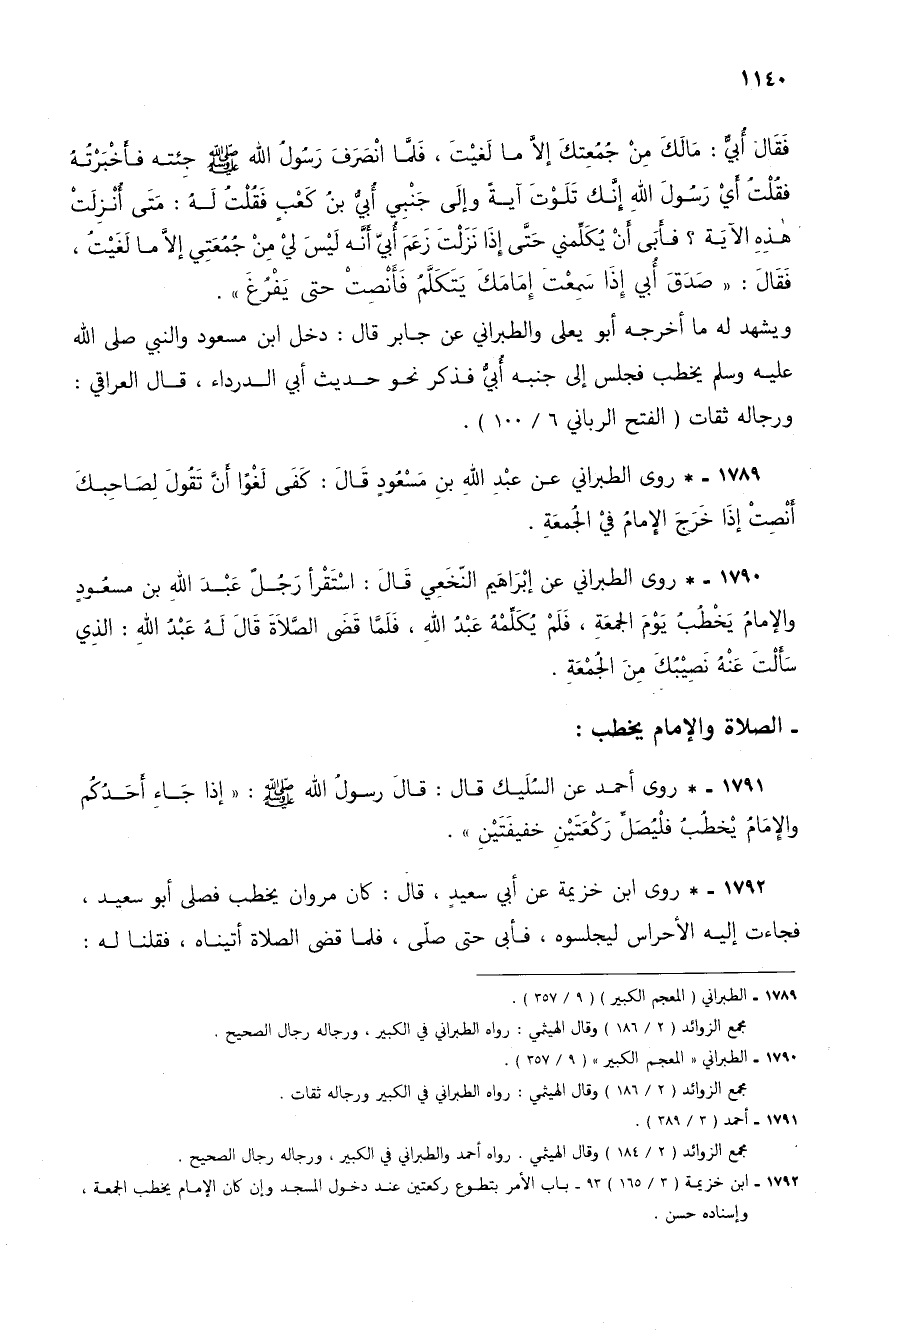 ١١٤٠
فَقَالَ أُبَيٌّ : مَالَكَ مِنْ جُمُعتِكَ إلاَّ ما لَغَيْتَ ، فَلَمَّا انْصَرَفَ رَسُولُ الله ﷺ جئته فأخْبَرْتُهُ
فقُلْتُ أيْ رَسُولَ اللهِ إنَّك تَلَوْتَ آيةً وإلَى جَنْبِي أُبَيُّ بنُ كَعْبٍ فَقُلْتُ لَهُ : مَتَى أُنْزِلَتْ
هٰذِهِ الآيَة ؟ فأبَى أنْ يُكَلِّمَني حَتَّى إذَا نَزَلْتَ زَعَمَ أبيّ أنَّه لَيْسَ لِيْ مِنْ جُمُعَتِي إلاَّ ما لَغَيْتُ ،
فَقَالَ : « صَدَقَ أُبي إذَا سَمِعْتَ إمَامَكَ يَتَكَلَّمُ فَأَنْصِتْ حتى يَفْرُغَ » .
ويشهد له ما أخرجه أبو يعلى والطبراني عن جابر قال : دخل ابن مسعود والنبي صلى الله
عليه وسلم يخطب فجلس إلى جنبه أُبيٌّ فذكر نحو حديث أبي الدرداء ، قال العراقي :
ورجاله ثقات ( الفتح الرباني ٦ / ١٠٠ ) .
١٧٨٩ - * روى الطبراني عن عبْدِ اللهِ بنِ مَسْعُودٍ قَالَ : كَفَى لَغْوًا أَنَّ تَقُولَ لِصَاحِبِكَ
أَنْصِتْ إذَا خَرَجَ الإمامُ فِيْ الجُمعَةِ .
١٧٩٠ - * روى الطبراني عن إبْرَاهِيمِ النَّخَعِي قَالَ : اسْتَقْرأ رَجُلٌ عَبْدَ اللهِ بن مسعُودٍ
والإمامُ يَخْطُبُ يَوْمَ الجمعَةِ ، فَلَمْ يُكَلِّمْهُ عَبْدُ الله ، فَلَمَّا قَضَى الصَّلاَةَ قالَ لَهُ عَبْدُ اللهِ : الذي
سَأَلْتَ عَنْهُ نَصِيْبُكَ مِنَ الجُمْعَةِ .
- الصلاة والإمام يخطب :
١٧٩١ - * روى أحمد عن السُّلَيك قال : قالَ رسولُ الله ﷺ : « إذا جَاءَ أَحَدُكُم
والإمَامُ يْخطُبُ فلْيُصَلِّ رَكْعَتَيْنِ خفيفَتَيْنِ » .
١٧٩٢ - * روى ابن خزيمة عن أبي سعيدٍ ، قال : كان مروان يخطب فصلى أبو سعيد ،
فجاءت إليه الأحراس ليجلسوه ، فأبى حتى صلّى ، فلما قضى الصلاة أتيناه ، فقلنا له :
١٧٨٩ - الطبراني ( المعجم الكبير ) ( ٩ / ٣٥٧ ) .
مجمع الزوائد ( ٢ / ١٨٦ ) وقال الهيثمي : رواه الطبراني في الكبير ، ورجاله رجال الصحيح .
١٧٩٠ - الطبراني « المعجم الكبير » ( ٩ / ٣٥٧ ) .
مجمع الزوائد ( ٢ / ١٨٦ ) وقال الهيثمي : رواه الطبراني في الكبير ورجاله ثقات .
١٧٩١ - أحمد ( ٣ / ٣٨٩ ) .
مجمع الزوائد ( ٢ / ١٨٤ ) وقال الهيثمي . رواه أحمد والطبراني في الكبير ، ورجاله رجال الصحيح .
١٧٩٢ - ابن خزيمة ( ٣ / ١٦٥ ) ٩٣ - باب الأمر بتطوع ركعتين عند دخول المسجد وإن كان الإمام يخطب الجمعة ،
وإسناده حسن .